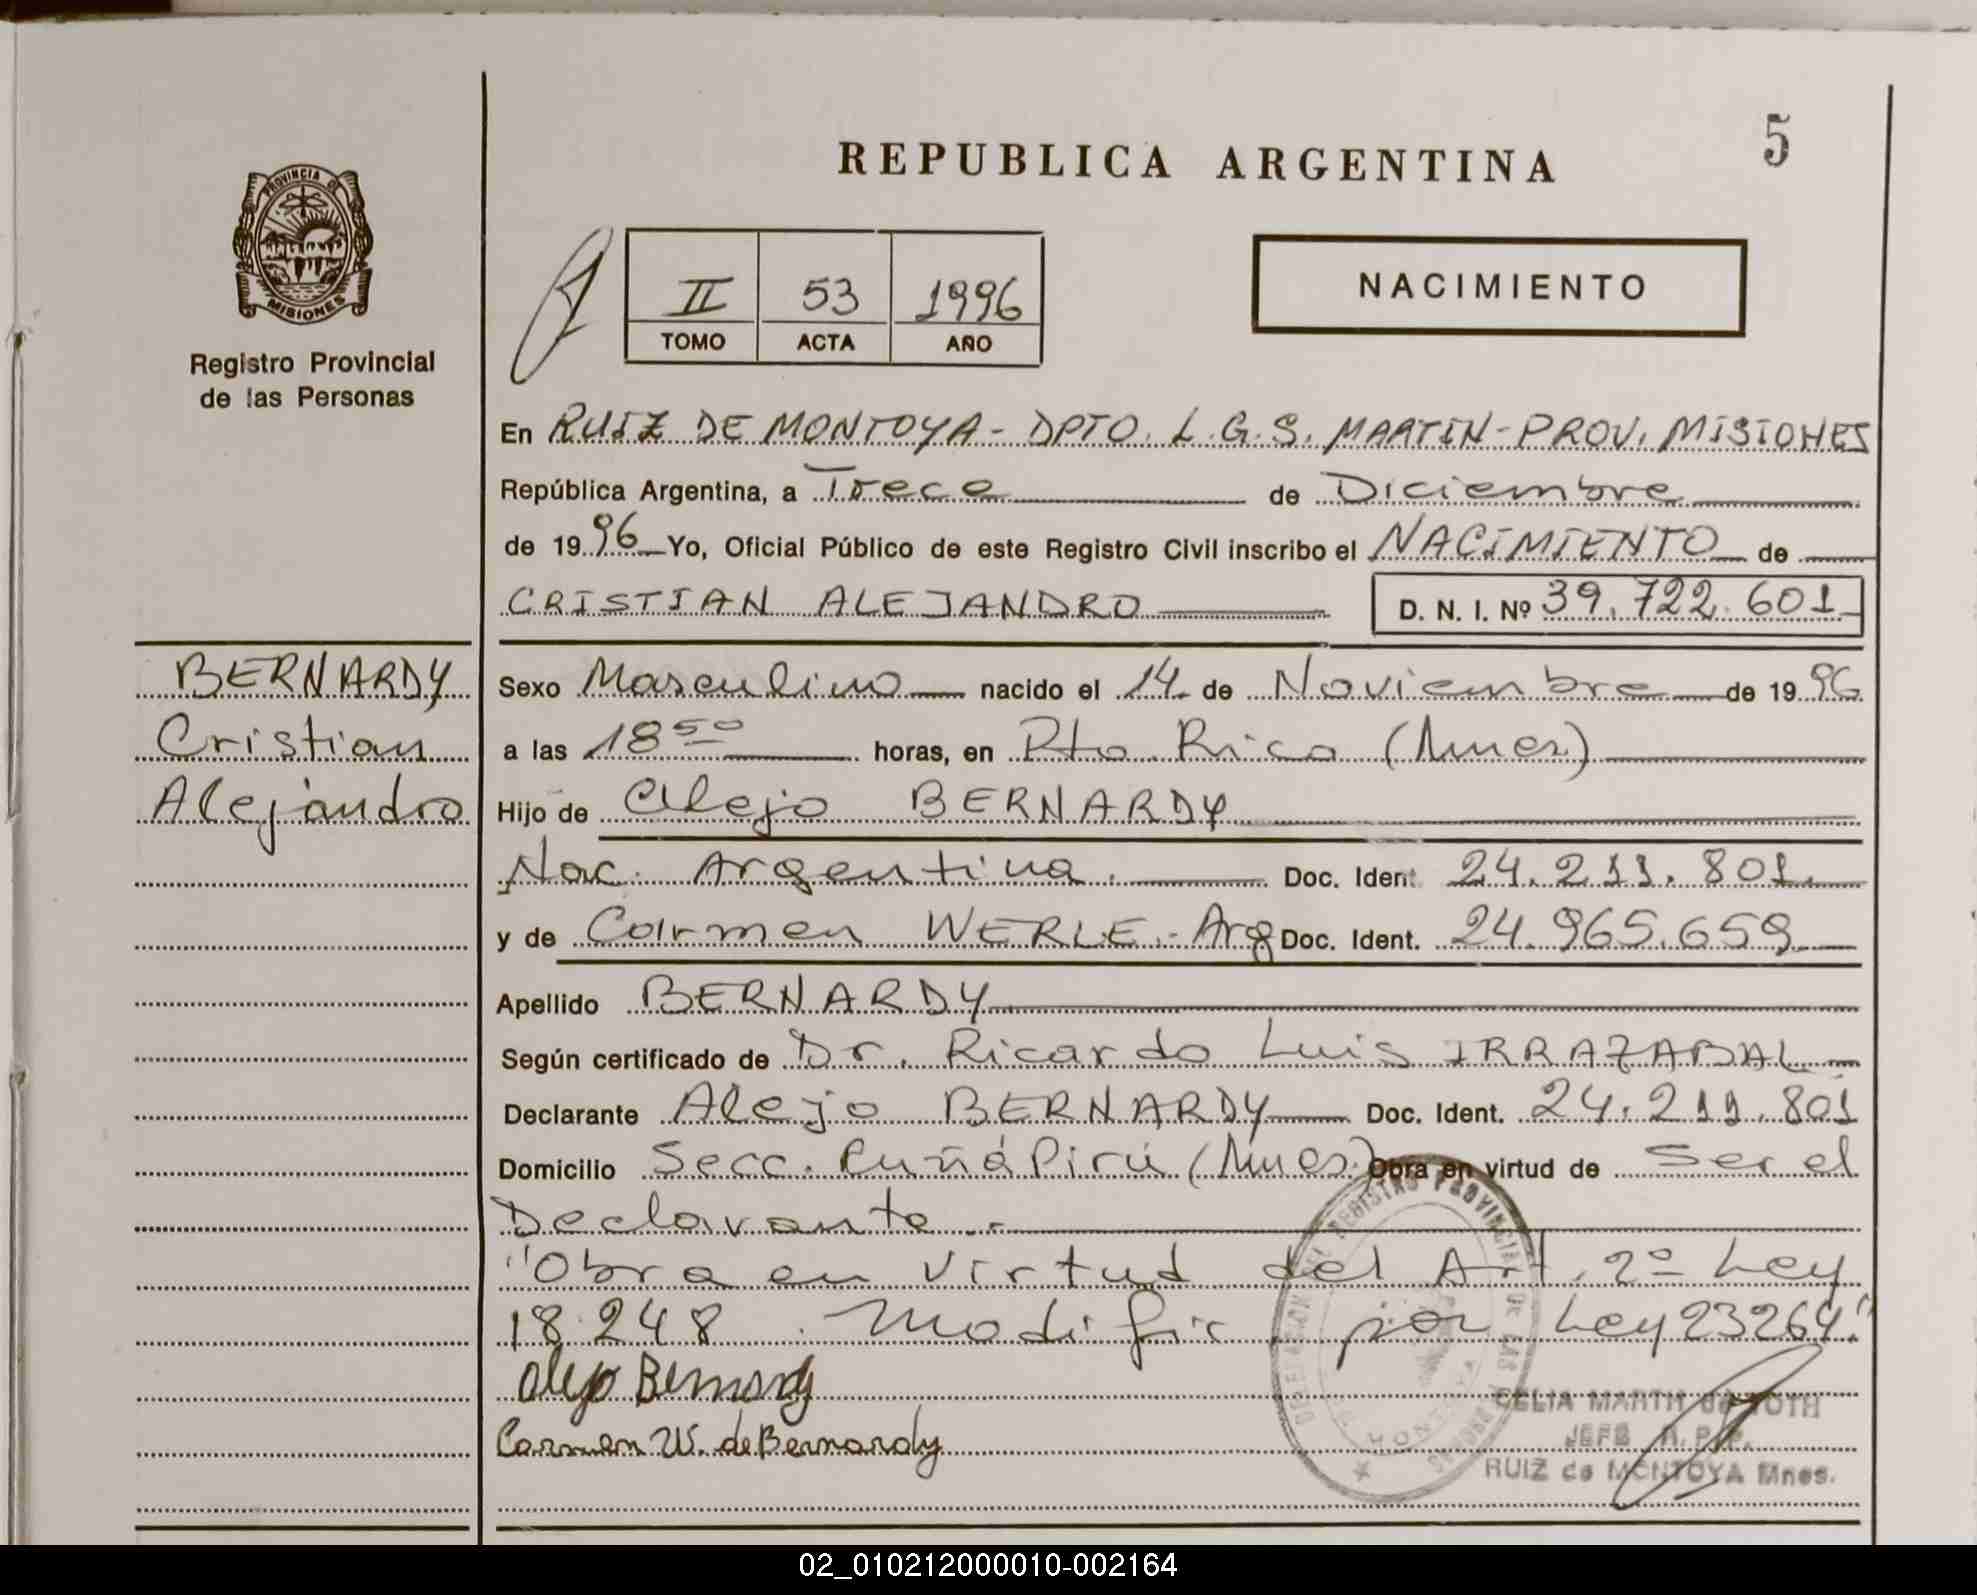 5
REPUBLICA ARGENTINA
PROVINCIA DE
MISIONES
Registro Provincial
de las Personas
II 53 1996
TOMO ACTA AÑO
NACIMIENTO
En RUIZ DE MONTOYA - DPTO. L.G.S. MARTIN - PROV. MISIONES
República Argentina, a Trece de Diciembre
de 1996 Yo, Oficial Público de este Registro Civil inscribo el NACIMIENTO de
CRISTIAN ALEJANDRO D. N. I. Nº 39.722.601
BERNARDY
Cristian
Alejandro
Sexo Masculino nacido el 14 de Noviembre de 1996
a las 18 50 horas, en Pto. Rico (Mnes)
Hijo de Alejo BERNARDY
Nac. Argentina. Doc. Ident 24.211.801.
y de Carmen WERLE.- Arg Doc. Ident. 24.965.659
Apellido BERNARDY
Según certificado de Dr. Ricardo Luis IRRAZABAL
Declarante Alejo BERNARDY Doc. Ident. 24.211.801
Domicilio Secc. Cuñá Pirú (Mnes.) Obra en virtud de Ser el
Declarante.-
"Obra en virtud del Art. 2º Ley
18.248. Modific. por Ley 23264."
Alejo Bernardy
Carmen W. de Bernardy
DELEGACION DEL REGISTRO PROVINCIAL DE LAS PERSONAS
CELIA MARTH de TOTH
JEFE R.P.P.
RUIZ de MONTOYA Mnes.
02_010212000010-002164